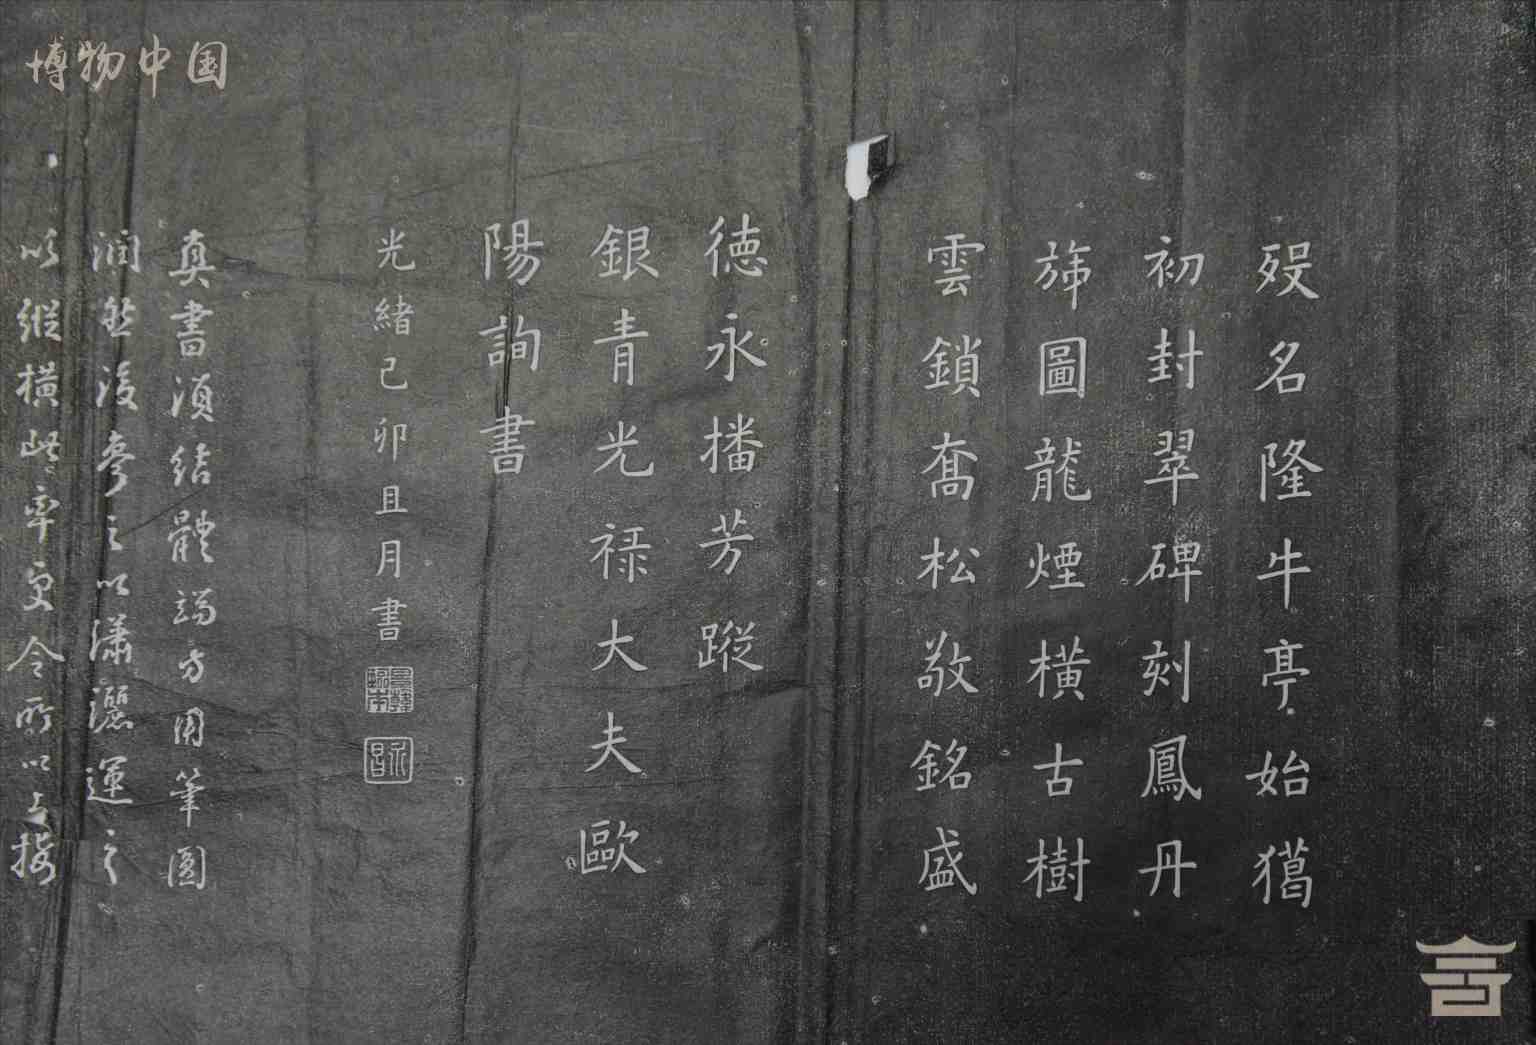 博物中国
歿名隆牛亭始獦
初封翠碑刻鳳丹
旆圖龍煙橫古樹
雲鎖喬松敬銘盛
德永播芳蹤
銀青光祿大夫歐
陽詢書
光緒己卯且月書
真書須結體端方用筆圓
潤然後參之以瀟灑運之
以縱橫此率更令所以上接